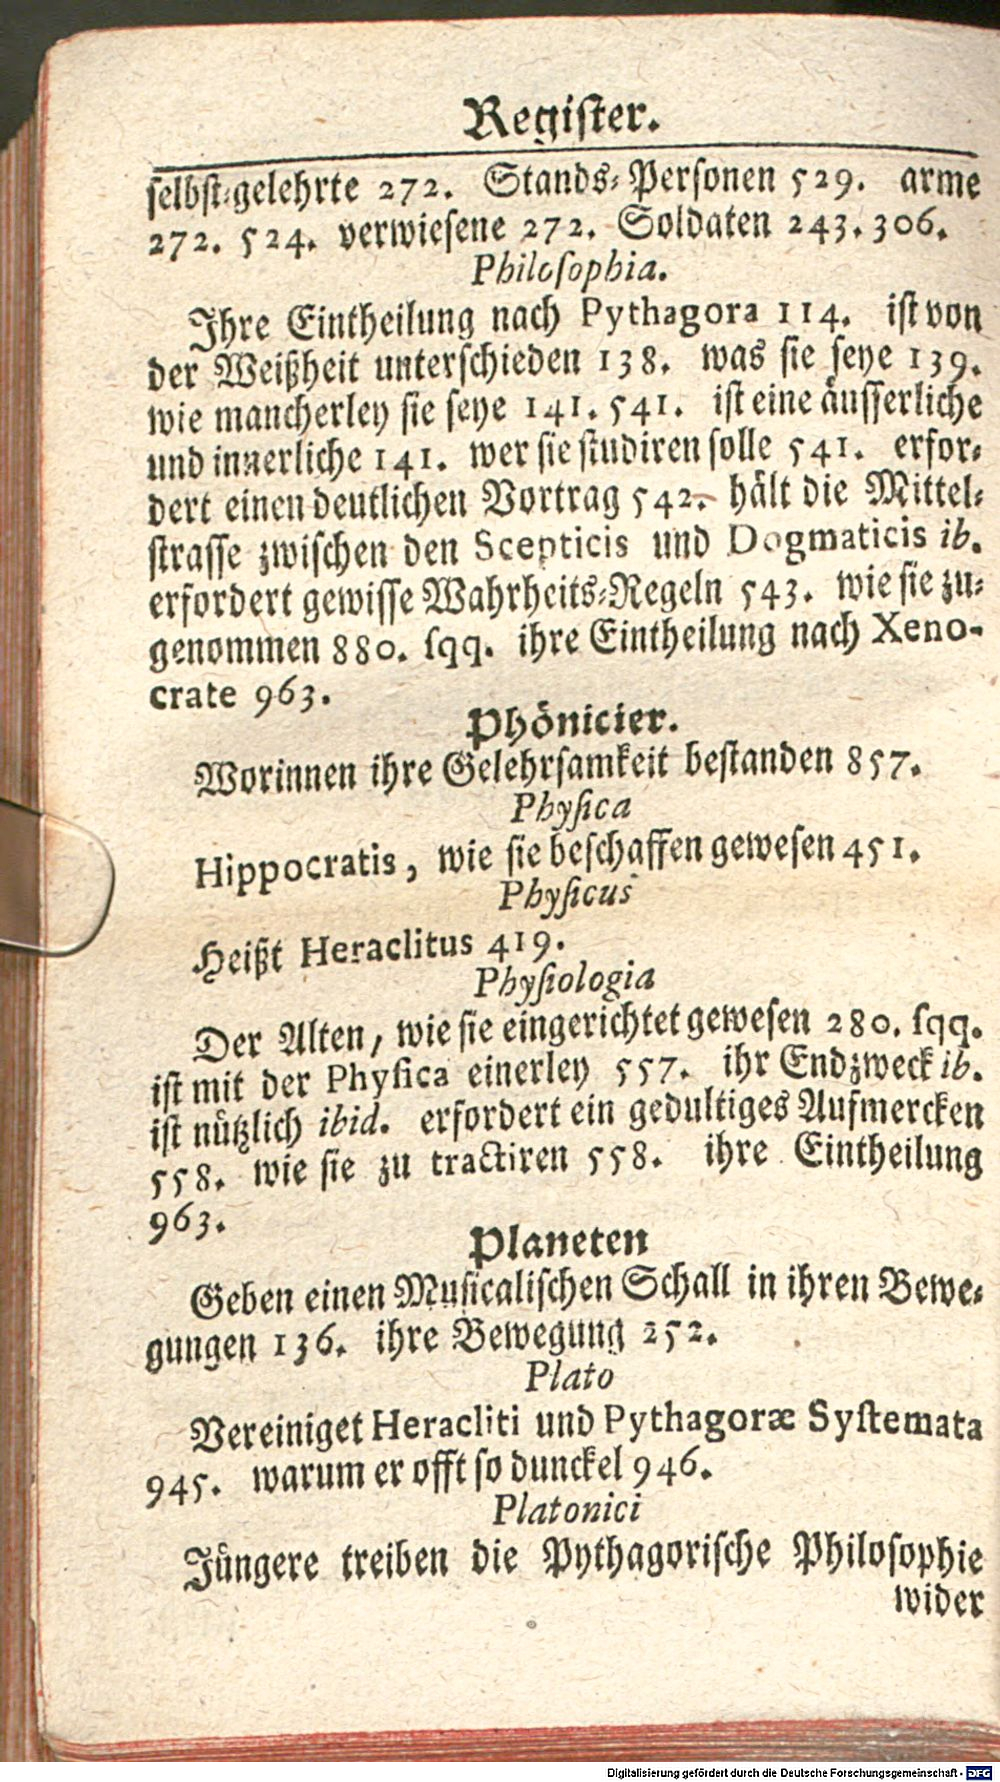 Register.
selbst-gelehrte 272. Stands-Personen 529. arme
272. 524. verwiesene 272. Soldaten 243. 306.
Philosophia.
Ihre Eintheilung nach Pythagora 114. ist von
der Weißheit unterschieden 138. was sie seye 139.
wie mancherley sie seye 141. 541. ist eine äusserliche
und innerliche 141. wer sie studiren solle 541. erfor-
dert einen deutlichen Vortrag 542. hält die Mittel-
strasse zwischen den Scepticis und Dogmaticis ib.
erfordert gewisse Wahrheits-Regeln 543. wie sie zu-
genommen 880. sqq. ihre Eintheilung nach Xeno-
crate 963.
Phönicier.
Worinnen ihre Gelehrsamkeit bestanden 857.
Physica
Hippocratis, wie sie beschaffen gewesen 451.
Physicus
Heißt Heraclitus 419.
Physiologia
Der Alten, wie sie eingerichtet gewesen 280. sqq.
ist mit der Physica einerley 557. ihr Endzweck ib.
ist nützlich ibid. erfordert ein gedultiges Aufmercken
558. wie sie zu tractiren 558. ihre Eintheilung
963.
Planeten
Geben einen Musicalischen Schall in ihren Bewe-
gungen 136. ihre Bewegung 252.
Plato
Vereiniget Heracliti und Pythagoræ Systemata
945. warum er offt so dunckel 946.
Platonici
Jüngere treiben die Pythagorische Philosophie
wider
Digitalisierung gefördert durch die Deutsche Forschungsgemeinschaft - DFG